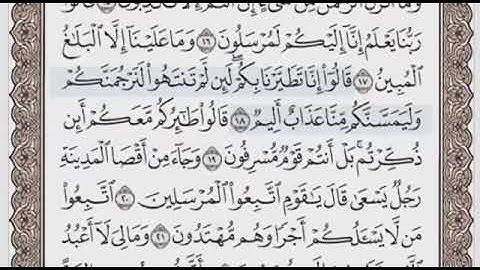 رَبُّنَا يَعْلَمُ إِنَّآ إِلَيْكُمْ لَمُرْسَلُونَ ١٦ وَمَا عَلَيْنَآ إِلَّا ٱلْبَلَٰغُ
ٱلْمُبِينُ ١٧ قَالُوٓا۟ إِنَّا تَطَيَّرْنَا بِكُمْ لَئِن لَّمْ تَنتَهُوا۟ لَنَرْجُمَنَّكُمْ
وَلَيَمَسَّنَّكُم مِّنَّا عَذَابٌ أَلِيمٌ ١٨ قَالُوا۟ طَٰٓئِرُكُم مَّعَكُمْ أَئِن
ذُكِّرْتُم بَلْ أَنتُمْ قَوْمٌ مُّسْرِفُونَ ١٩ وَجَآءَ مِنْ أَقْصَا ٱلْمَدِينَةِ
رَجُلٌ يَسْعَىٰ قَالَ يَٰقَوْمِ ٱتَّبِعُوا۟ ٱلْمُرْسَلِينَ ٢٠ ٱتَّبِعُوا۟
مَن لَّا يَسْـَٔلُكُمْ أَجْرًا وَهُم مُّهْتَدُونَ ٢١ وَمَا لِىَ لَآ أَعْبُدُ